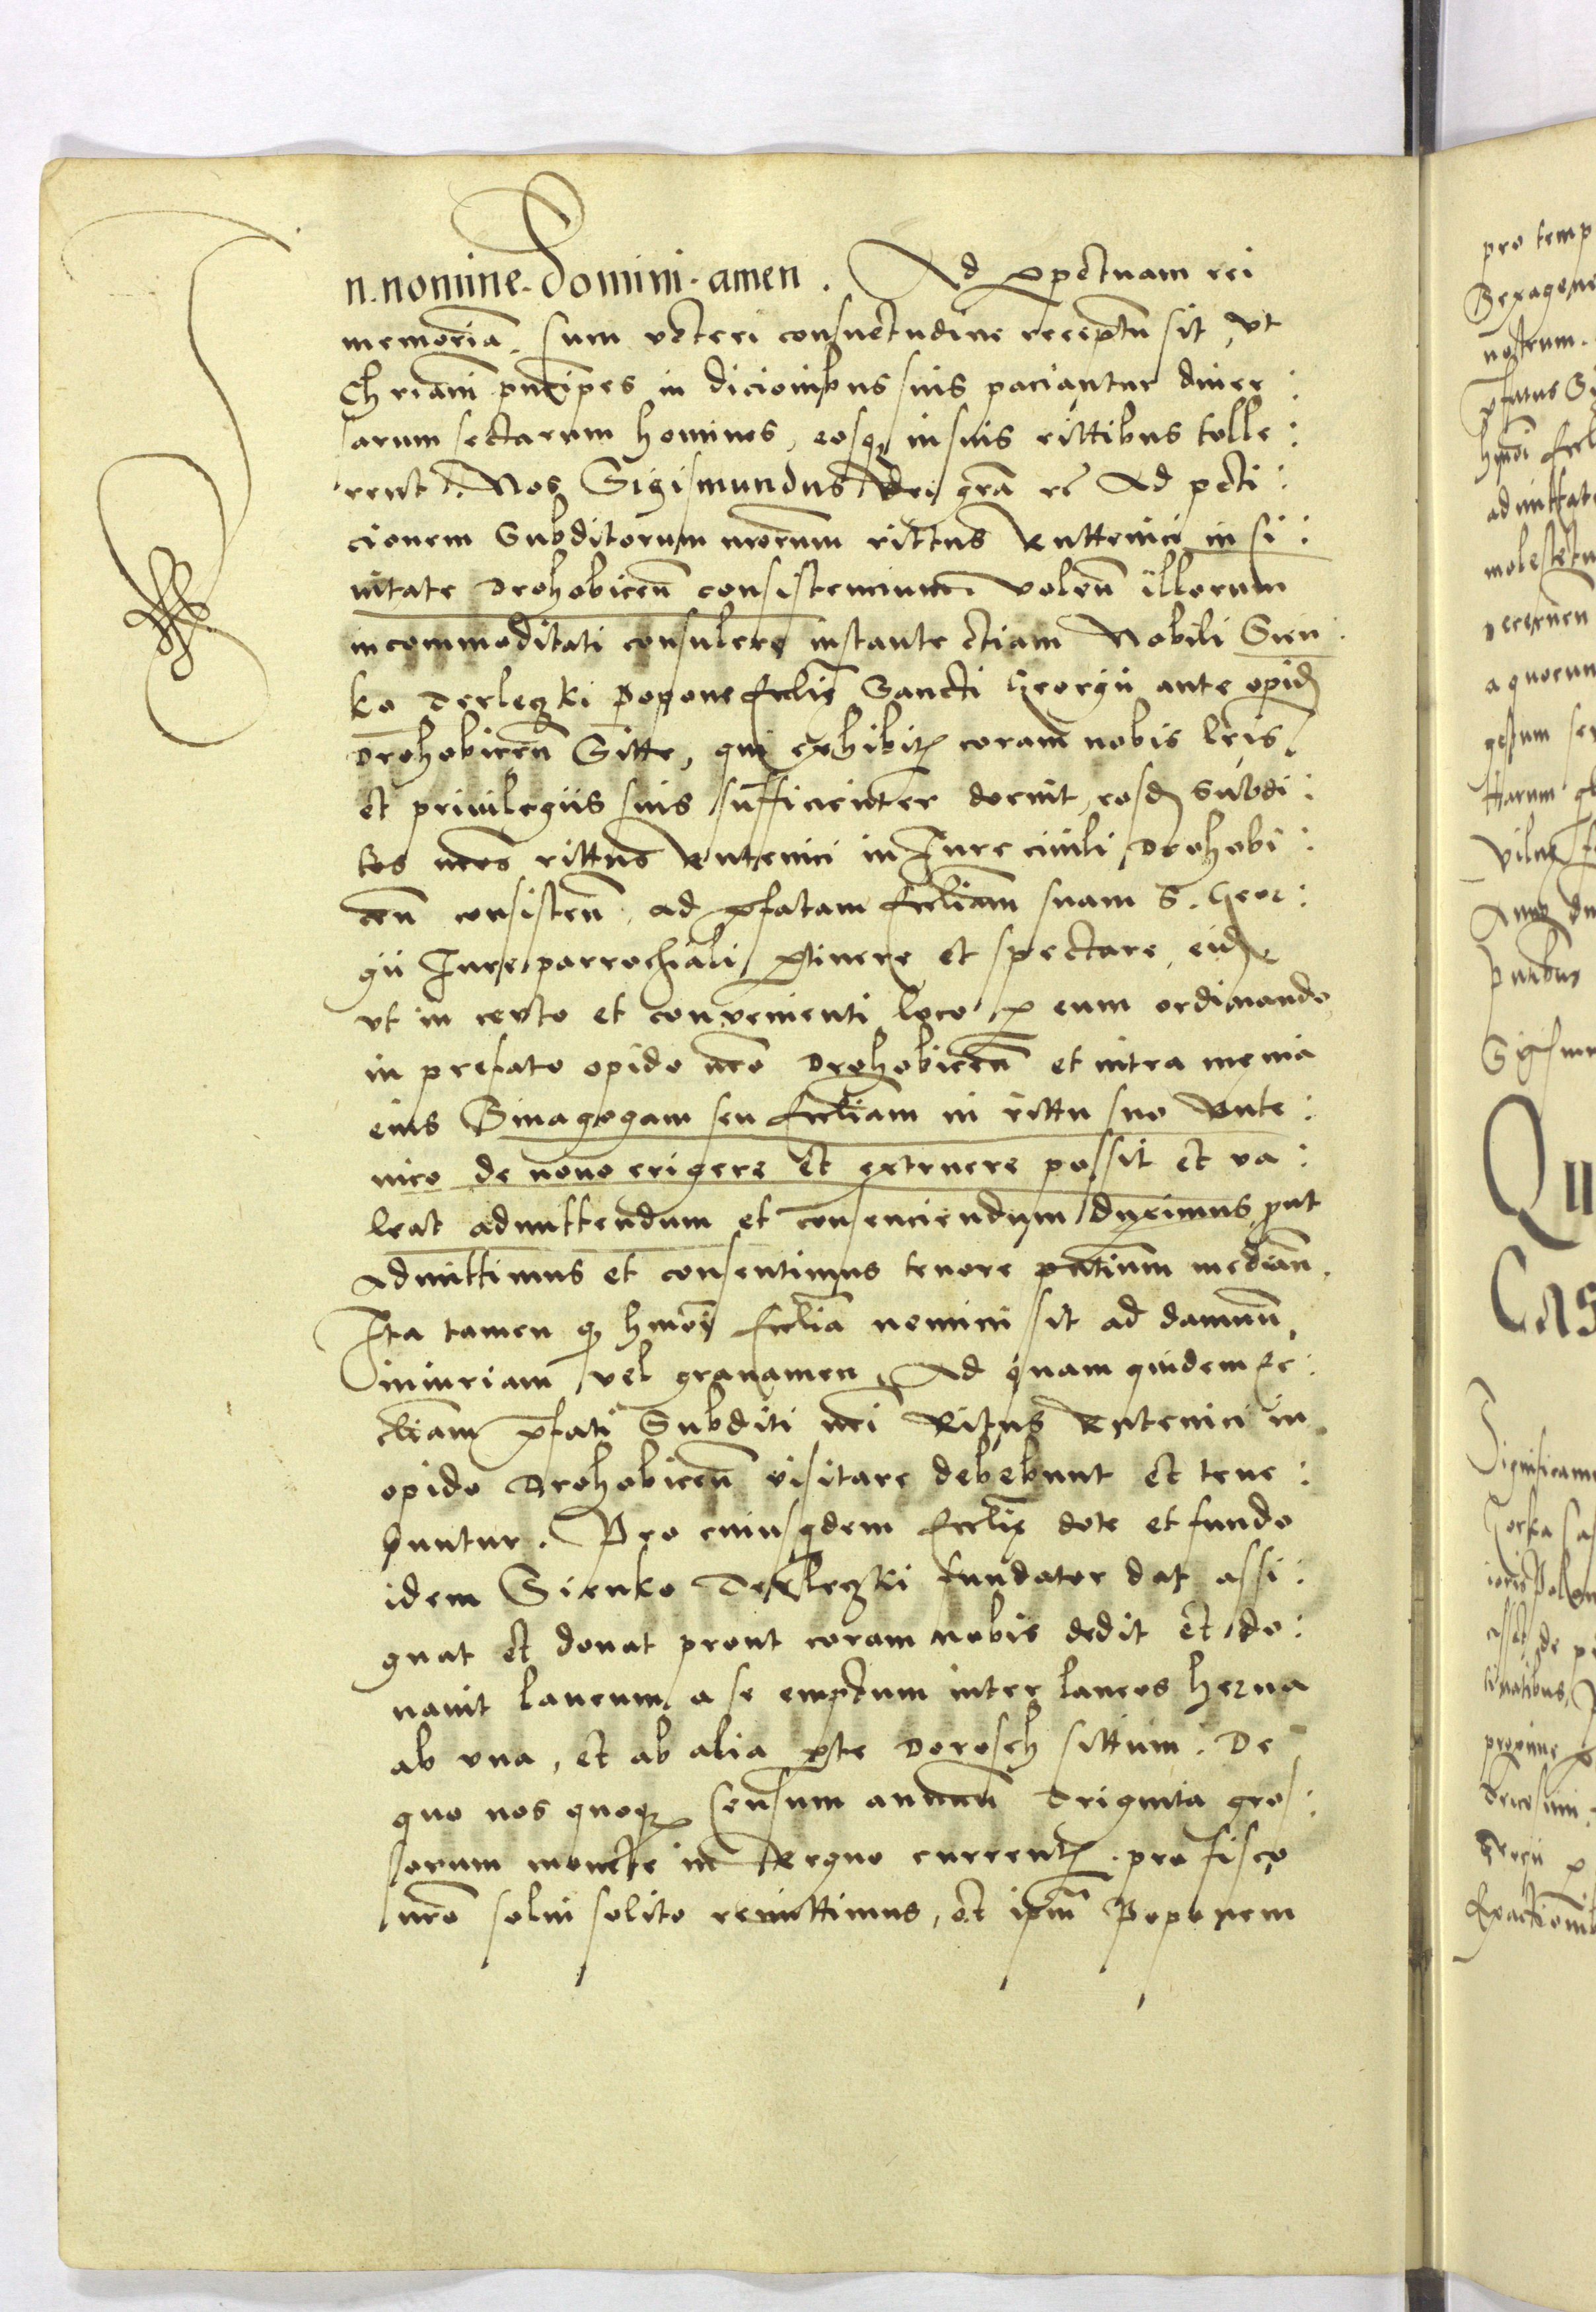 In nomine Domini amen. Ad perpetuam rei
memoriã. Cum veteri consuetudine receptũ sit, vt
Chrianĩ principes in dicionibus suis paciantur diuer:
sarum sectarum homines, eosq in suis rittibus tolle:
rent. Nos Sigismundus Dei gra rc Ad peti:
cionem Subditorum nrorum rittus Ruttenici in Ci:
uitate Drohobicen̄ consistencium, volen̄ illorum
incommoditati consulere instante etiam Nobili Sien:
ko Terleczki Popone Ecclie Sancti Georgii ante opid
Drohobicen̄ Sitte, qui exhibit coram nobis lris
et priuilegiis suis sufficienter docuit, eosd Subdi:
tos nros rittus Rutenici in Iure ciuili Drohobi:
cen̄ consisten̄. ad pfatam Eccliam suam S. Geor:
gii Iure parrochiali ptinere et spectare, eid
vt in certo et convenienti loco p eum ordinando
in prefato opido nro Drohobicen̄ et intra menia
eius Sinagogam seu Eccliam in rittu suo Rute:
nico de nouo erigere et extruere possit et va:
leat admittendum et consenciendum duximus, put
Admittimus et consentimus tenore pntium median̄.
Ita tamen q hmoi Ecclia nemini sit ad damnũ,
iniuriam vel grauamen. Ad quam quidem Ec:
cliam pfati Subditi nri Ritus Rutenici in
opido Drohobicen̄ visitare debebunt et tene:
buntur. Pro cuiusquidem Ecclie dote et fundo
idem Sienko Terleczki fundator dat assi:
gnat et donat prout coram nobis dedit et do:
nauit laneum a se emptum inter laneos Herna
ab vna, et ab alia pte Dorosch sittum. De
quo nos quoq Censum annuũ Triginta gros:
sorum monete in Regno current pro fisco
nro solui solito remittimus, et ipm̃ Poponem
pro temp
Sexagene
nostrum.
pfatus Si
hmoi Eccl
admittat
molestetu
decernen̄
a quocun
Harum
Viln
Anno dn
Sigismu
Qu
Cas
Significam